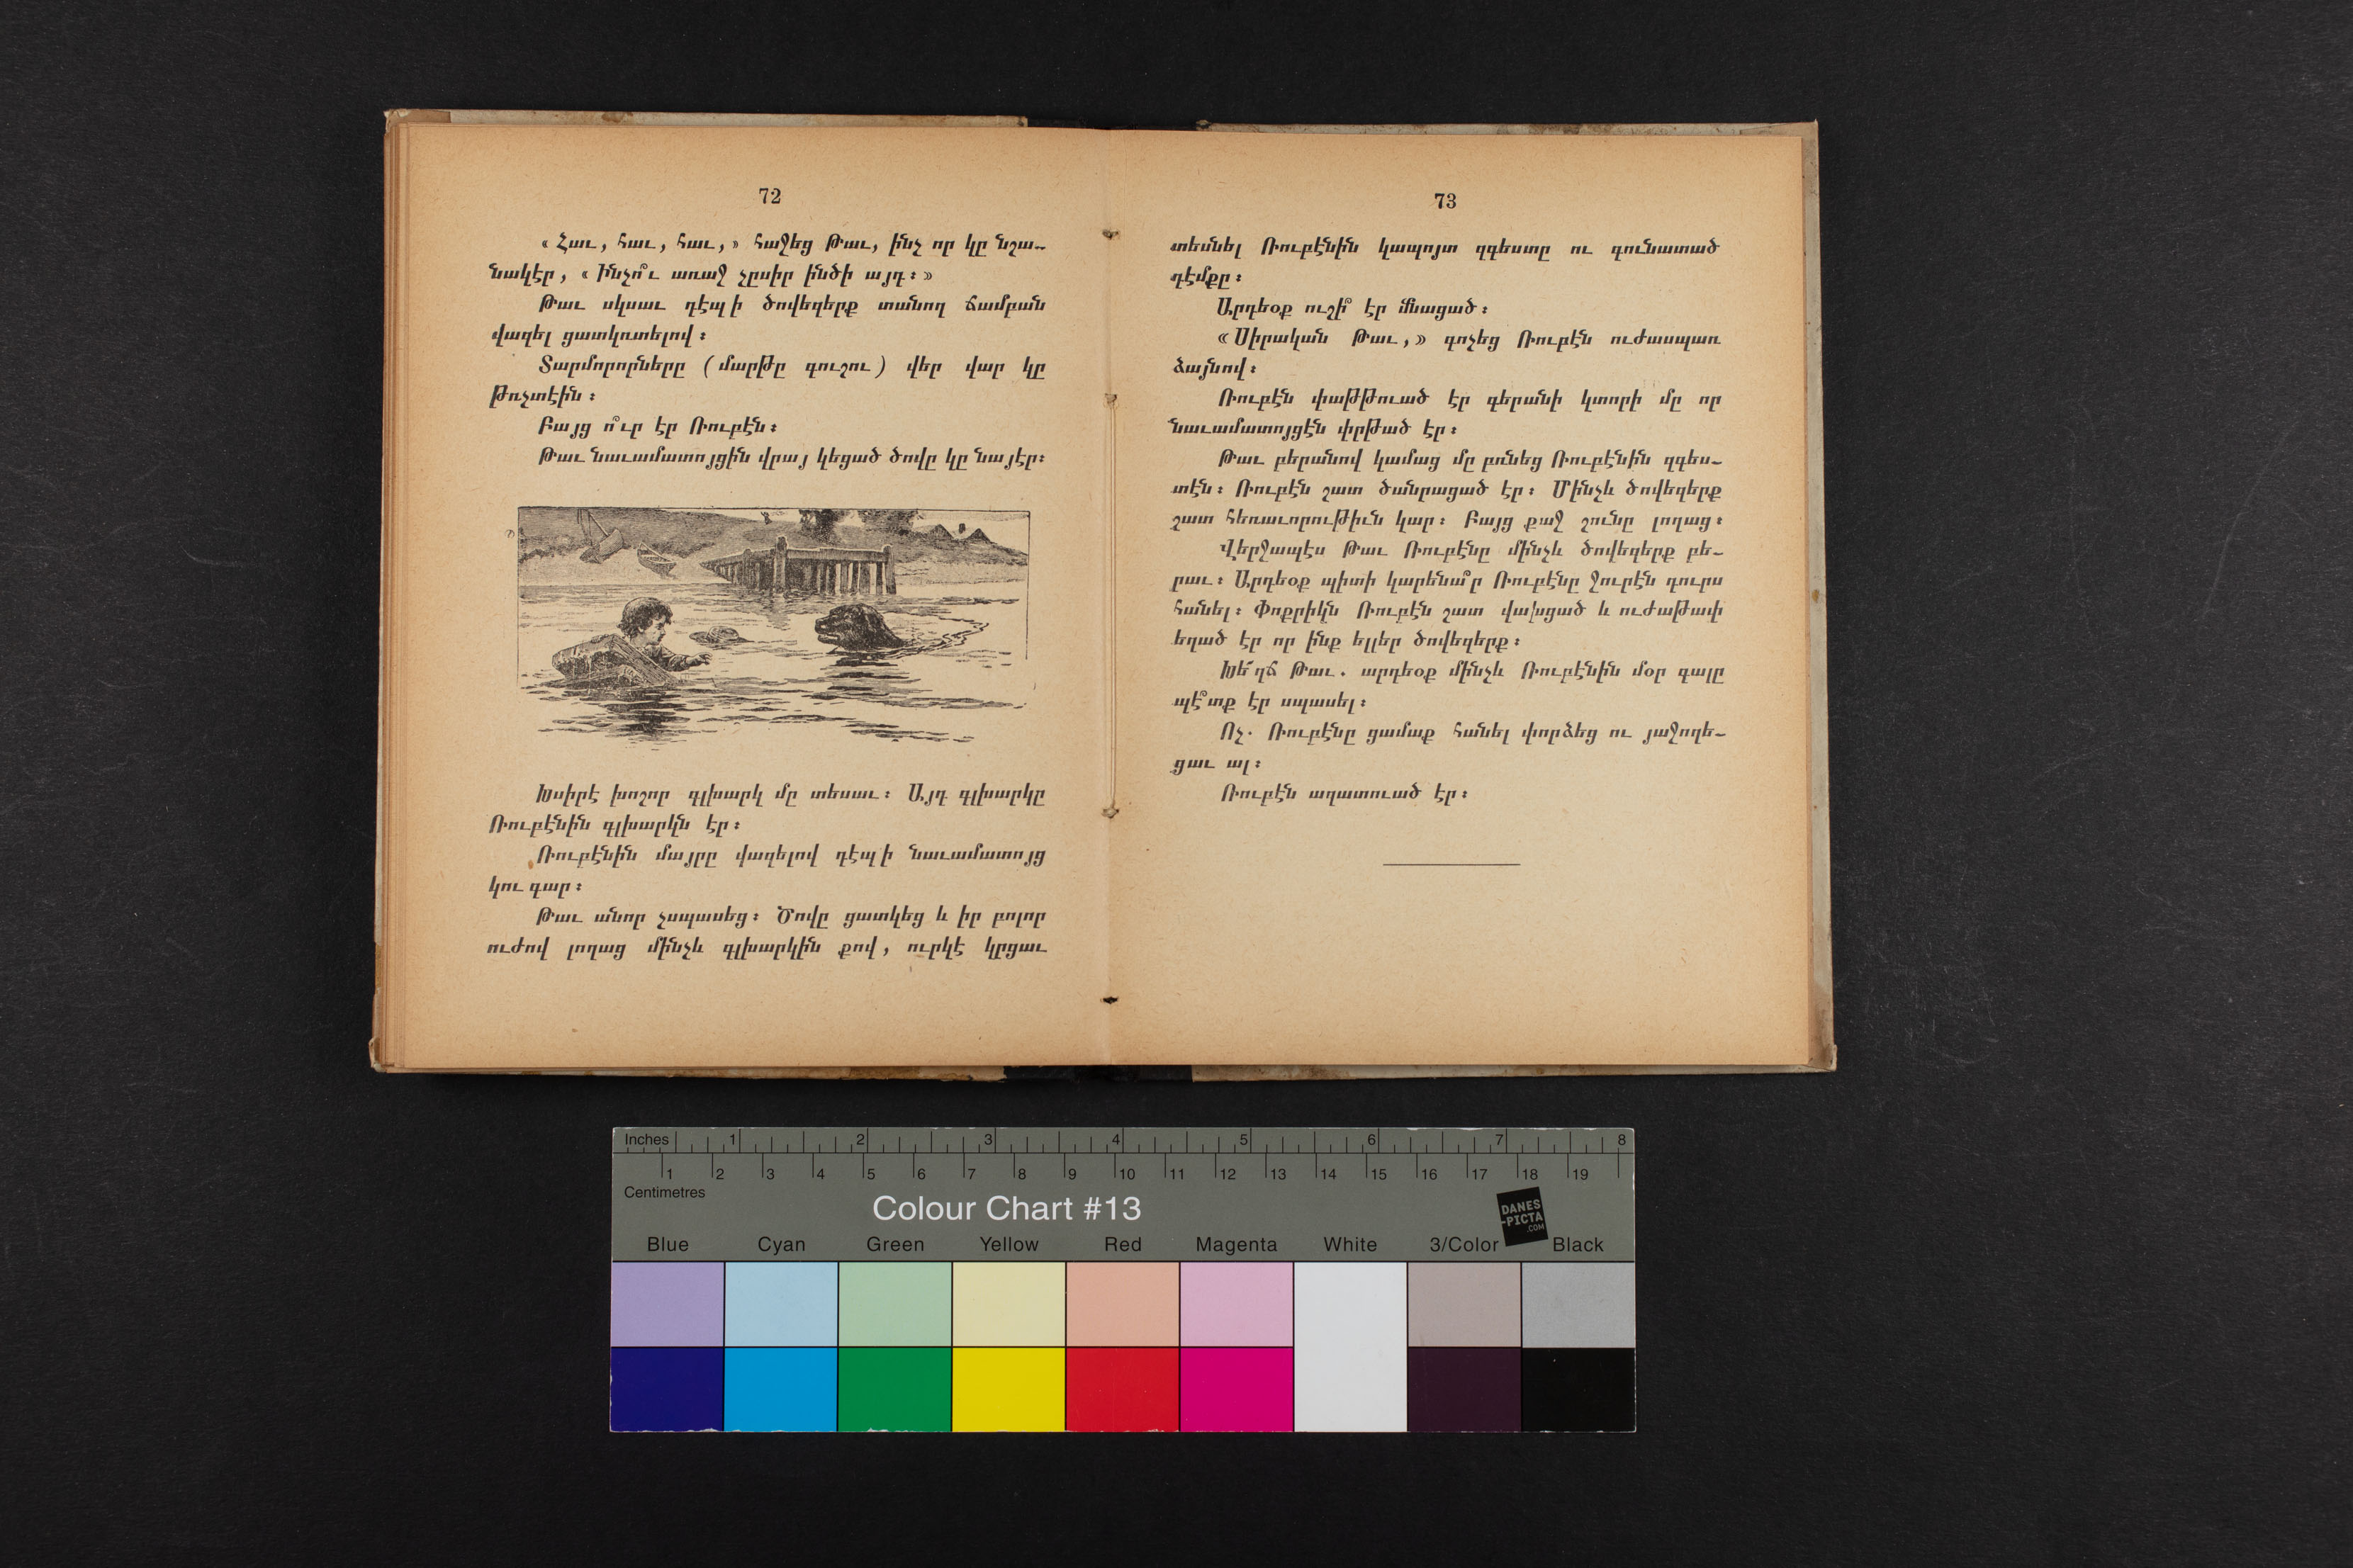 72
« Հաւ, հաւ, հաւ,» հաջեց Թաւ, ինչ որ կը նշա-
նակէր, « Ինչո՞ւ առաջ չըսիր ինծի այդ։»
Թաւ սկսաւ դէպ ի ծովեզերք տանող ճամբան
վազել ցատկռտելով։
Տարմորորները (մարթը գուշու) վեր վար կը
թռչտէին։
Բայց ո՞ւր էր Ռուբէն։
Թաւ նաւամատոյցին վրայ կեցած ծովը կը նայէր։
Խսիրէ խոշոր գլխարկ մը տեսաւ։ Այդ գլխարկը
Ռուբէնին գլխարկն էր։
Ռուբէնին մայրը վազելով դէպ ի նաւամատոյց
կու գար։
Թաւ անոր չսպասեց։ Ծովը ցատկեց և իր բոլոր
ուժով լողաց մինչև գլխարկին քով, ուրկէ կրցաւ
73
տեսնել Ռուբէնին կապոյտ զգեստը ու գունատած
դէմքը։
Արդեօք ուշի՞ էր մնացած։
«Սիրական Թաւ,» գոչեց Ռուբէն ուժասպառ
ձայնով։
Ռուբէն փաթթուած էր գերանի կտորի մը որ
նաւամատոյցէն փրթած էր։
Թաւ բերանով կամաց մը բռնեց Ռուբէնին զգես-
տէն։ Ռուբէն շատ ծանրացած էր։ Մինչև ծովեզերք
շատ հեռաւորութիւն կար։ Բայց քաջ շունը լողաց։
Վերջապէս Թաւ Ռուբէնը մինչև ծովեզերք բե-
րաւ։ Արդեօք պիտի կարենա՞ր Ռուբէնը ջուրէն դուրս
հանել։ Փոքրիկն Ռուբէն շատ վախցած և ուժաթափ
եղած էր որ ինք ելլեր ծովեզերք։
Խե՜ղճ Թաւ. արդեօք մինչև Ռուբէնին մօր գալը
պէ՞տք էր սպասել։
Ոչ. Ռուբէնը ցամաք հանել փորձեց ու յաջողե-
ցաւ ալ։
Ռուբէն ազատուած էր։
Inches 1 2 3 4 5 6 7 8
1 2 3 4 5 6 7 8 9 10 11 12 13 14 15 16 17 18 19
Centimetres
Colour Chart #13
DANES
-PICTA
.COM
Blue Cyan Green Yellow Red Magenta White 3/Color Black